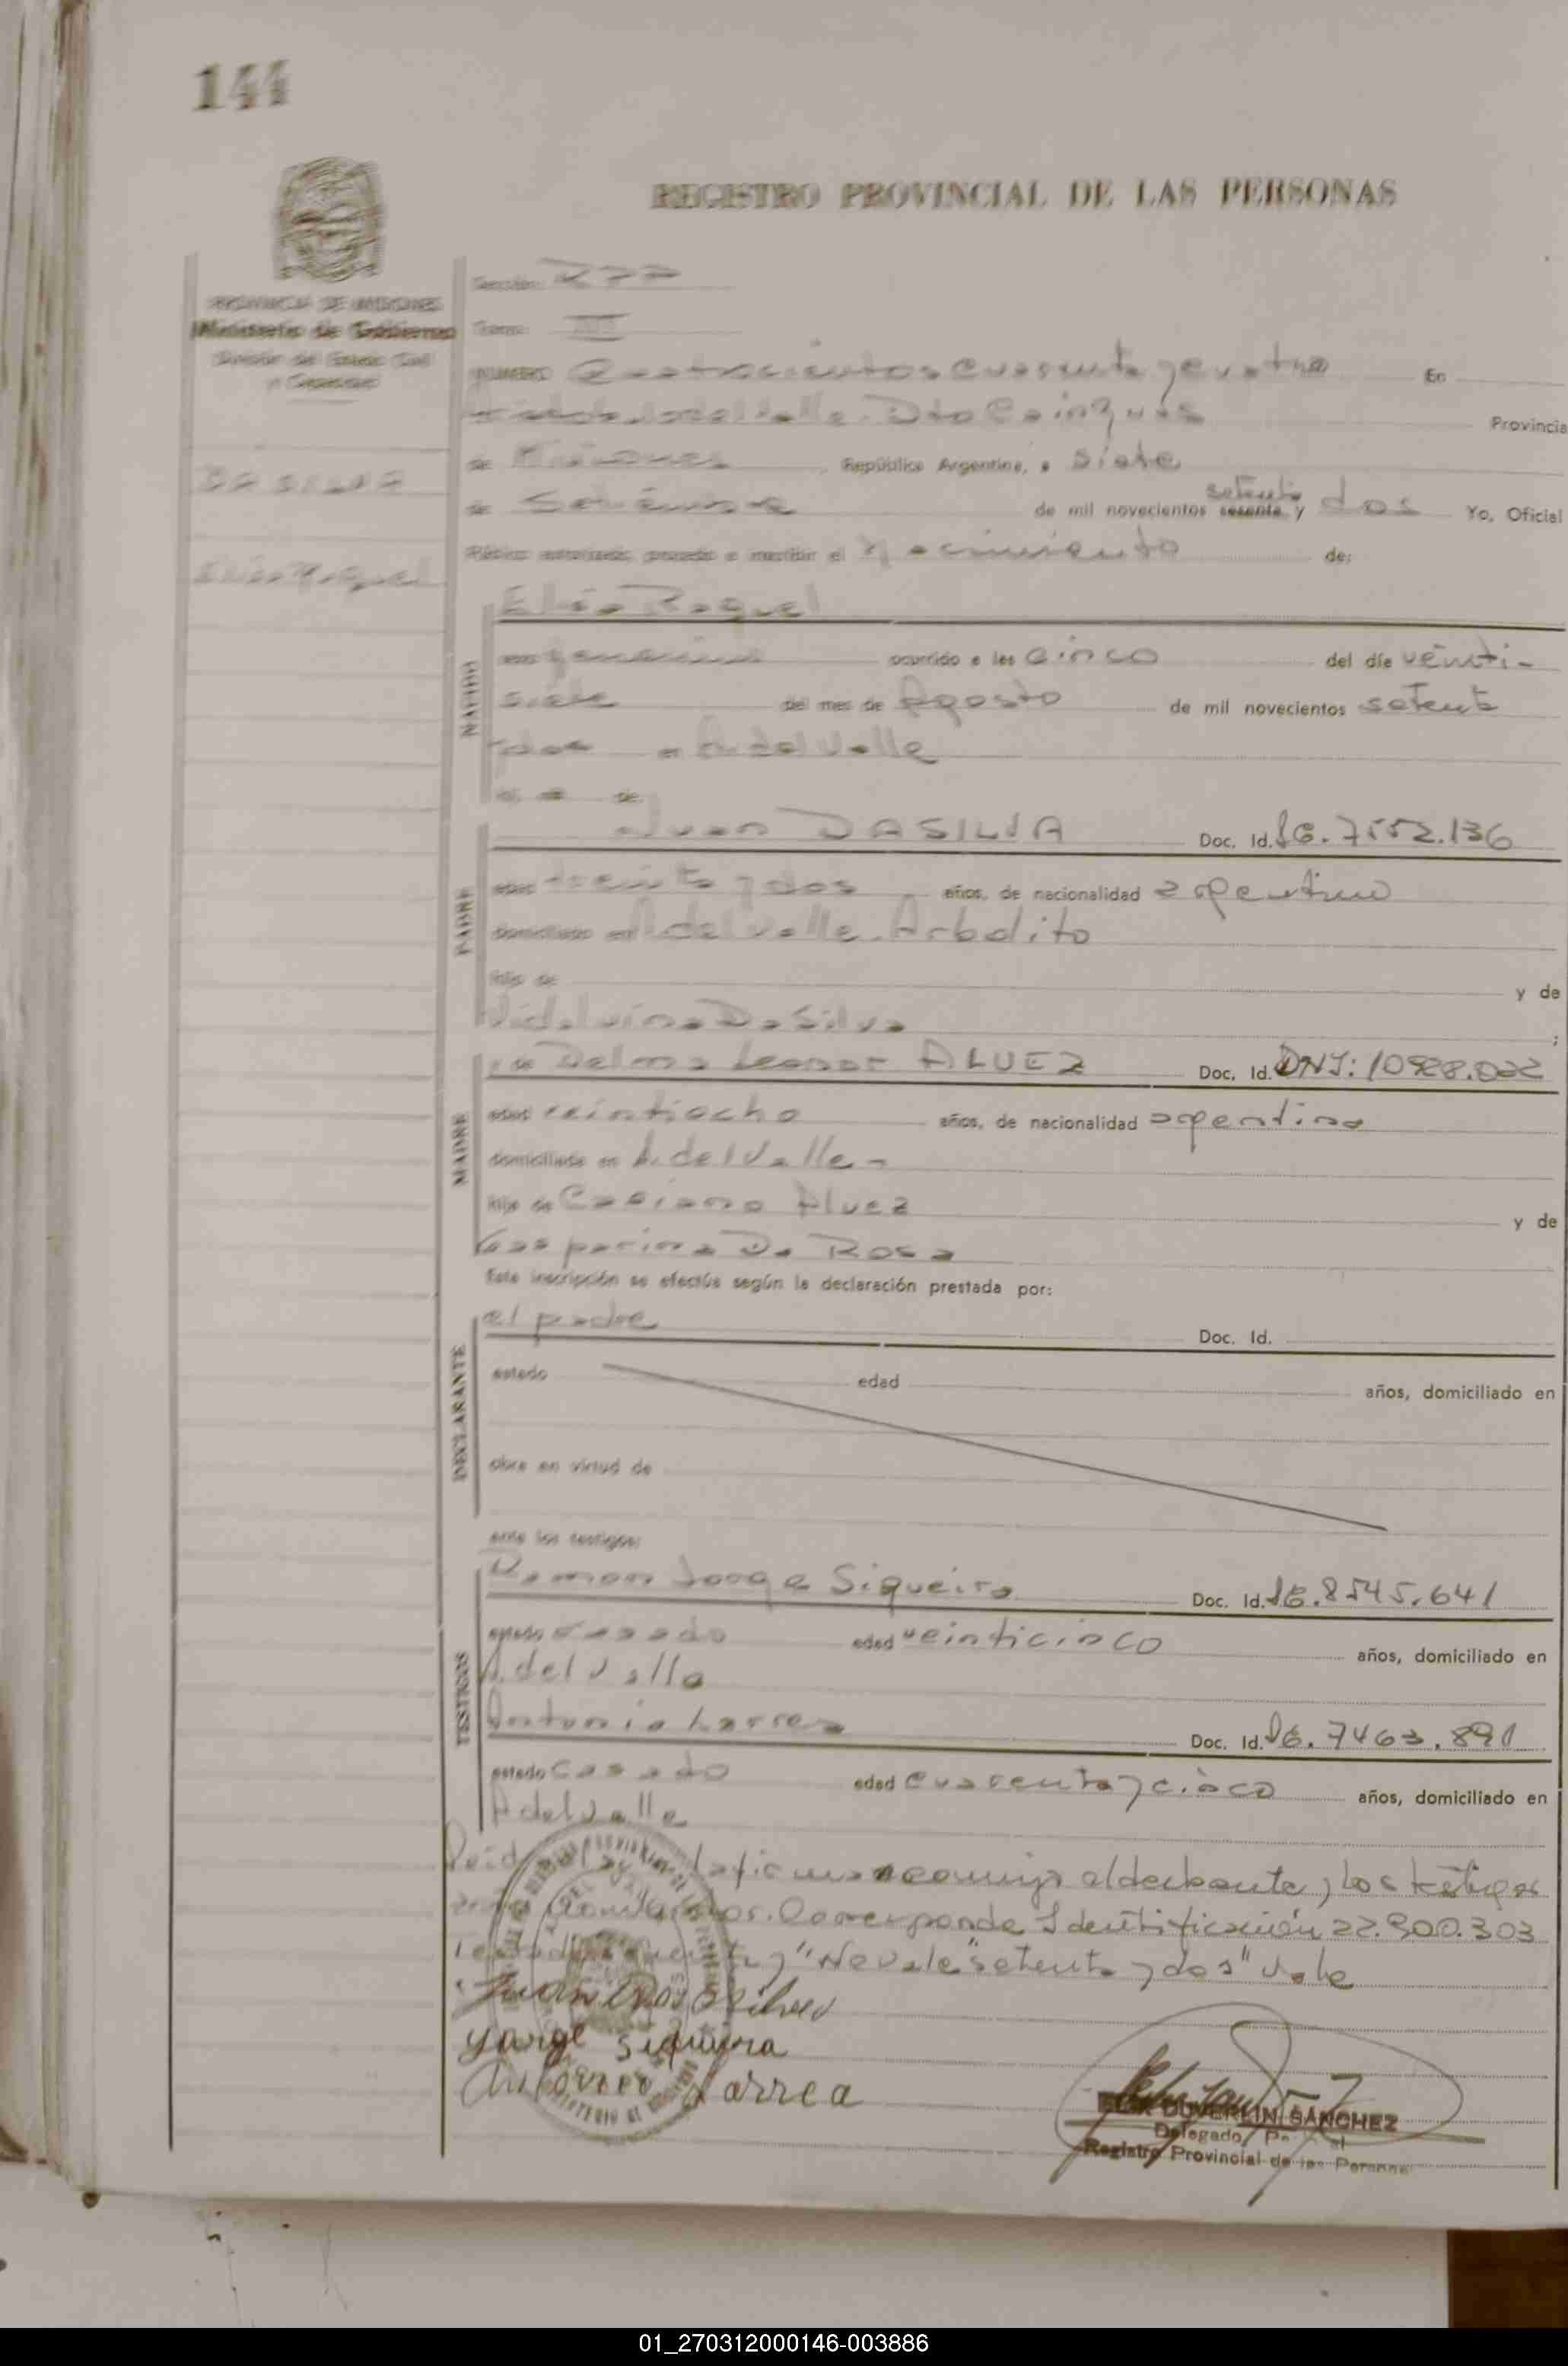 144
REGISTRO PROVINCIAL DE LAS PERSONAS
PROVINCIA DE MISIONES
Ministerio de Gobierno
Sección 277
Tomo: III
NUMERO Cuatrocientos cuarenta y cuatro En
del Valle. Dto Cainguás Provincia
de Misiones, República Argentina, a siete
DA SILVA
de Setiembre de mil novecientos sesenta y setenta dos Yo, Oficial
Público autorizado, procedo a inscribir el Nacimiento de:
Raquel
Raquel
NACIDO
sexo femenino ocurrido a las cinco del día veinti-
siete del mes de Agosto de mil novecientos setenta
y dos en A. del Valle
es de
PADRE
Juan DASILVA Doc. Id. 7552.136
edad treinta y dos años, de nacionalidad argentino
domiciliado en A del Valle. Arbolito
hijo de y de
Da Silva ;
y de Delma Leonor ALVEZ Doc. Id. DNI: 10988.022
MADRE
edad veintiocho años, de nacionalidad argentina
domiciliada en A. del Valle -
hija de Casiano Alvez y de
Gasparina Da Rosa
Esta inscripción se efectúa según la declaración prestada por:
DECLARANTE
el padre Doc. Id.
estado edad años, domiciliado en
obra en virtud de
ante los testigos:
TESTIGOS
Ramon Jorge Siqueira Doc. Id. 8545.641
estado casado edad veinticinco años, domiciliado en
A. del Valle
Antonio Larrea Doc. Id. 7463.891
estado casado edad cuarenta y cinco años, domiciliado en
A del Valle
Leida el acta la firman conmigo el declarante y los testigos
Corresponde Identificación 22.900.303
"No vale" setenta y dos" vale
Juan Da Silva
Jorge Siqueira
Antonio Larrea
DUVERLIN SANCHEZ
Delegado
Registro Provincial de las Personas
01_270312000146-003886